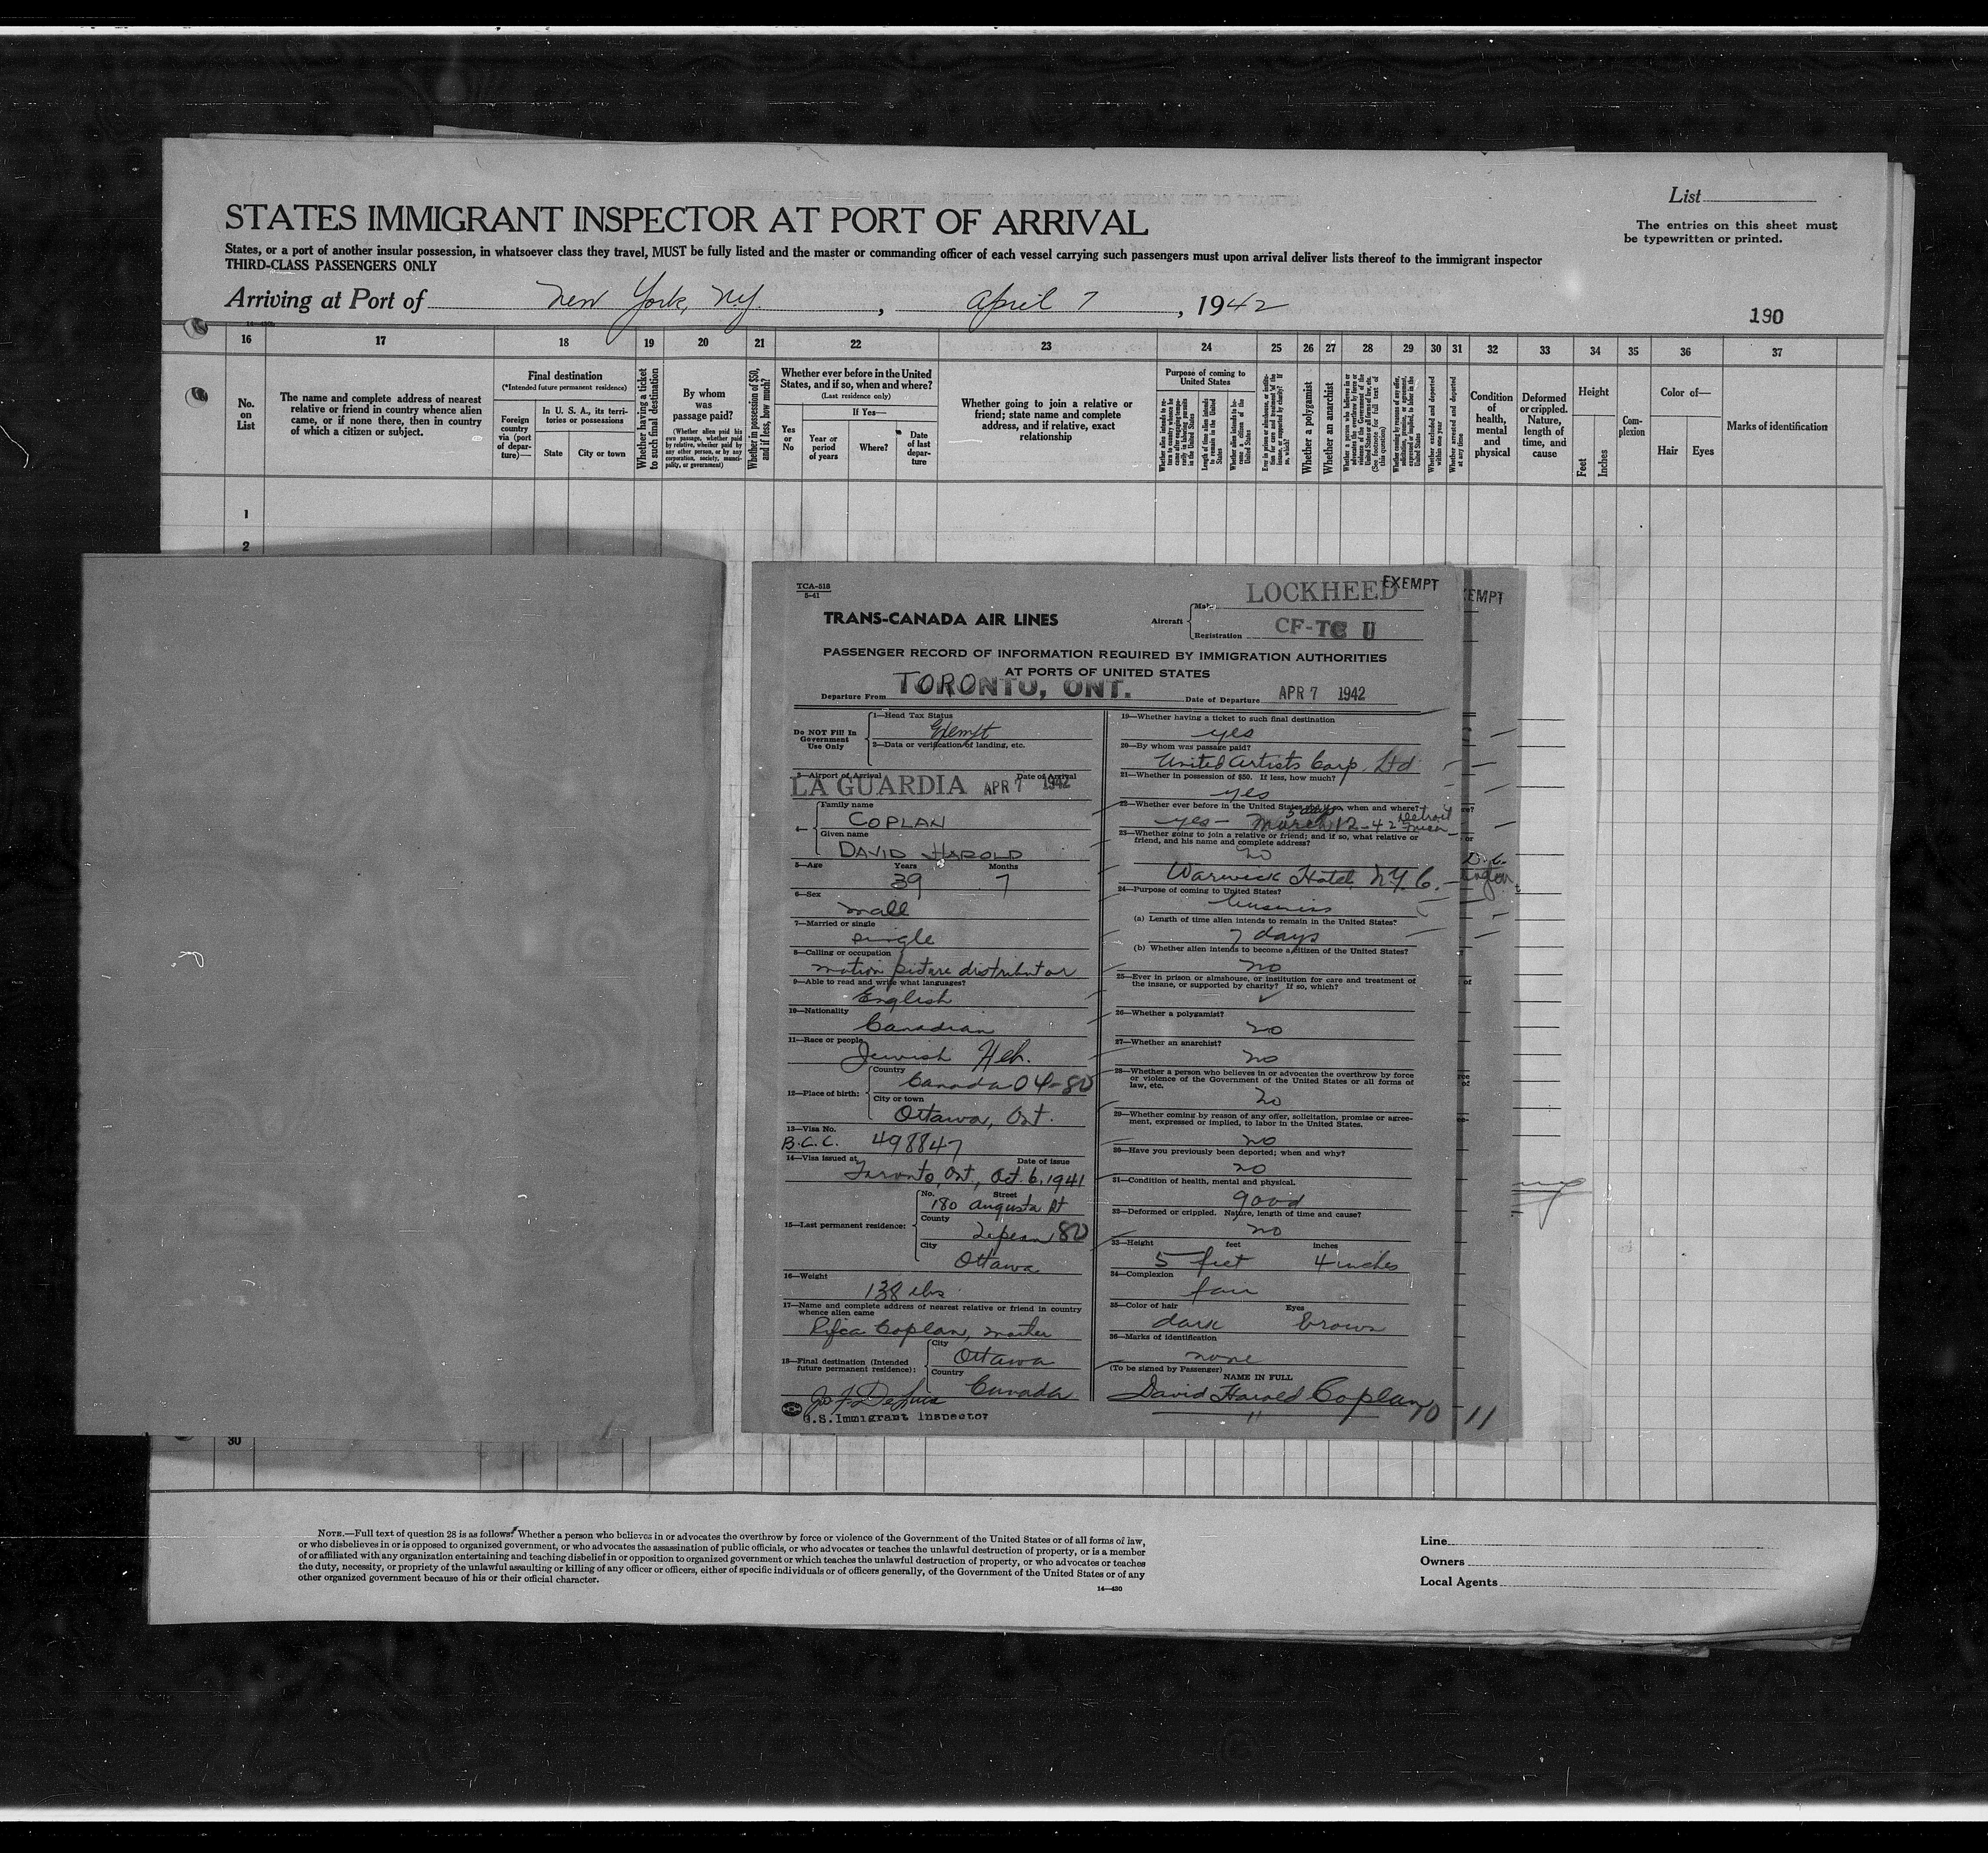 List
The entries on this sheet must
be typewritten or printed.
STATES IMMIGRANT INSPECTOR AT PORT OF ARRIVAL
States, or a port of another insular possession, in whatsoever class they travel, MUST be fully listed and the master or commanding officer of each vessel carrying such passengers must upon arrival deliver lists thereof to the immigrant inspector
THIRD-CLASS PASSENGERS ONLY
Arriving at Port of New York, N.Y., April 7, 1942
190
16 17 18 19 20 21 22 23 24 25 26 27 28 29 30 31 32 33 34 35 36 37
No.
on
List
The name and complete address of nearest
relative or friend in country whence alien
came, or if none there, then in country
of which a citizen or subject.
Final destination
(*Intended future permanent residence)
Foreign
country
via (port
of depar-
ture)—
In U. S. A., its terri-
tories or possessions
State
City or town
Whether having a ticket
to such final destination
By whom
was
passage paid?
(Whether alien paid his
own passage, whether paid
by relative, whether paid by
any other person, or by any
corporation, society, munici-
pality, or government)
Whether in possession of $50,
and if less, how much?
Whether ever before in the United
States, and if so, when and where?
(Last residence only)
Yes
or
No
If Yes—
Year or
period
of years
Where?
Date
of last
depar-
ture
Whether going to join a relative or
friend; state name and complete
address, and if relative, exact
relationship
Purpose of coming to
United States
Whether alien intends to re-
turn to country whence he
came after engaging tempo-
rarily in laboring pursuits
in the United States
Length of time alien intends
to remain in the United
States
Whether alien intends to be-
come a citizen of the
United States
Ever in prison or almshouse, or institu-
tion for care and treatment of the
insane, or supported by charity? If
so, which?
Whether a polygamist
Whether an anarchist
Whether a person who believes in or
advocates the overthrow by force or
violence of the Government of the
United States or all forms of law, etc.
(See footnote for full text of
this question)
Whether coming by reasons of any offer,
solicitation, promise, or agreement,
expressed or implied, to labor in the
United States
Whether excluded and deported
within one year
Whether arrested and deported
at any time
Condition
of
health,
mental
and
physical
Deformed
or crippled.
Nature,
length of
time, and
cause
Height
Feet
Inches
Com-
plexion
Color of—
Hair
Eyes
Marks of identification
1
2
TCA-518
5-41
LOCKHEED
EXEMPT
EMPT
TRANS-CANADA AIR LINES
Aircraft
Make
Registration CF-TC U
PASSENGER RECORD OF INFORMATION REQUIRED BY IMMIGRATION AUTHORITIES
AT PORTS OF UNITED STATES
Departure From TORONTO, ONT. Date of Departure APR 7 1942
Do NOT Fill In
Government
Use Only
1—Head Tax Status
Exempt
2—Data or verification of landing, etc.
3—Airport of Arrival Date of Arrival
LA GUARDIA APR 7 1942
4—
Family name
COPLAN
Given name
DAVID HAROLD
5—Age Years Months
39 7
6—Sex
male
7—Married or single
single
8—Calling or occupation
motion picture distributor
9—Able to read and write what languages?
English
10—Nationality
Canadian
11—Race or people
Jewish Heb.
12—Place of birth:
Country
Canada 04-80
City or town
Ottawa, Ont.
13—Visa No.
B.C.C. 498847
14—Visa issued at Date of issue
Toronto, Ont., Oct. 6, 1941
15—Last permanent residence:
No. Street
180 Augusta St
County
80
City
Ottawa
16—Weight
138 lbs
17—Name and complete address of nearest relative or friend in country
whence alien came
Coplan, mother
18—Final destination (Intended
future permanent residence):
City
Ottawa
Country
Canada
U.S. Immigrant Inspector
19—Whether having a ticket to such final destination
yes
20—By whom was passage paid?
United Artists Corp. Ltd
21—Whether in possession of $50. If less, how much?
yes
22—Whether ever before in the United States and if so, when and where?
3 days
yes — March 12-42 Detroit
23—Whether going to join a relative or friend; and if so, what relative or
friend, and his name and complete address?
no
Warwick Hotel N.Y.C.
24—Purpose of coming to United States?
business
(a) Length of time alien intends to remain in the United States?
7 days
(b) Whether alien intends to become a citizen of the United States?
no
25—Ever in prison or almshouse, or institution for care and treatment of
the insane, or supported by charity? If so, which?
26—Whether a polygamist?
no
27—Whether an anarchist?
no
28—Whether a person who believes in or advocates the overthrow by force
or violence of the Government of the United States or all forms of
law, etc.
no
29—Whether coming by reason of any offer, solicitation, promise or agree-
ment, expressed or implied, to labor in the United States.
no
30—Have you previously been deported; when and why?
no
31—Condition of health, mental and physical.
good
32—Deformed or crippled. Nature, length of time and cause?
no
33—Height feet inches
5 feet 4 inches
34—Complexion
fair
35—Color of hair Eyes
dark brown
36—Marks of identification
none
(To be signed by Passenger)
NAME IN FULL
David Harold Coplan
10
11
30
NOTE.—Full text of question 28 is as follows: Whether a person who believes in or advocates the overthrow by force or violence of the Government of the United States or of all forms of law,
or who disbelieves in or is opposed to organized government, or who advocates the assassination of public officials, or who advocates or teaches the unlawful destruction of property, or is a member
of or affiliated with any organization entertaining and teaching disbelief in or opposition to organized government or which teaches the unlawful destruction of property, or who advocates or teaches
the duty, necessity, or propriety of the unlawful assaulting or killing of any officer or officers, either of specific individuals or of officers generally, of the Government of the United States or of any
other organized government because of his or their official character.
14—430
Line
Owners
Local Agents